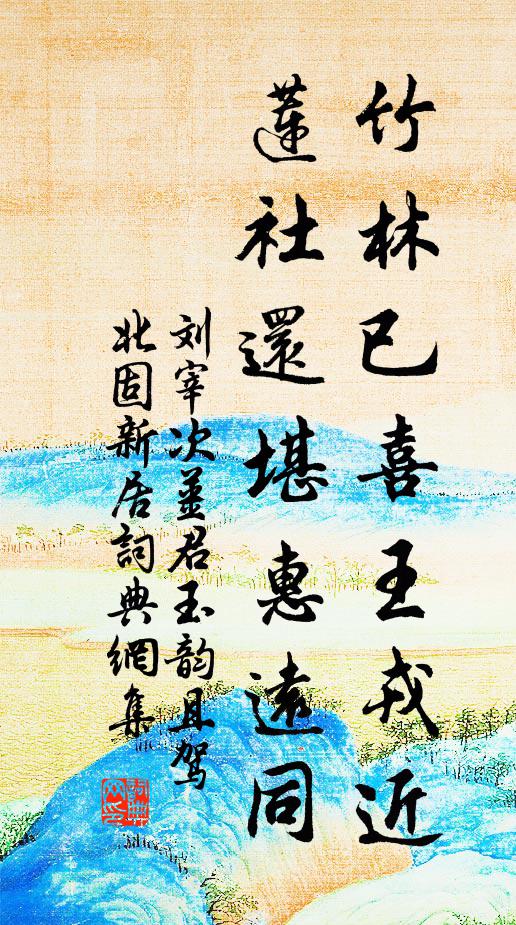 竹林已喜王戎近
蓮社還堪惠遠同
刘宰次姜君玉韵且驾
北固新居詞典網集